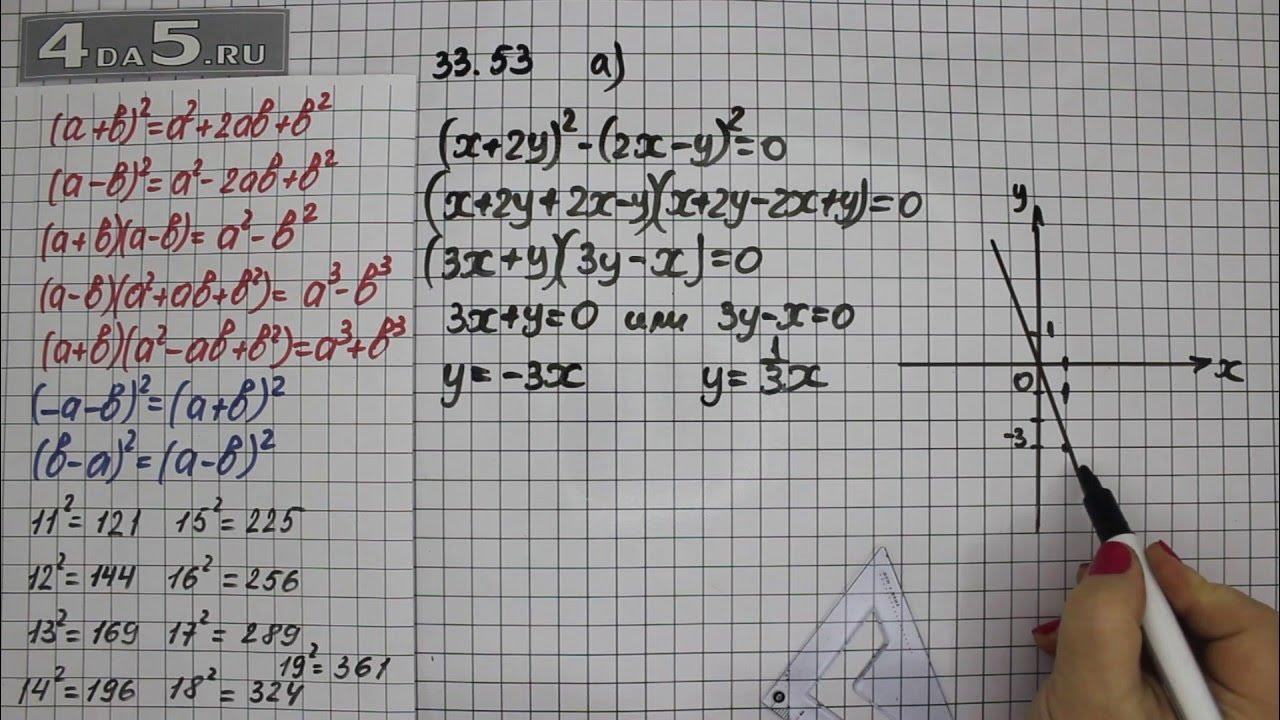 4DA5.RU
(a+b)²=a²+2ab+b²
(a-b)²=a²-2ab+b²
(a+b)(a-b)=a²-b²
(a-b)(a²+ab+b²)=a³-b³
(a+b)(a²-ab+b²)=a³+b³
(-a-b)²=(a+b)²
(b-a)²=(a-b)²
11²=121 15²=225
12²=144 16²=256
13²=169 17²=289
19²=361
14²=196 18²=324
33.53 а)
(x+2y)²-(2x-y)²=0
(x+2y+2x-y)(x+2y-2x+y)=0
(3x+y)(3y-x)=0
3x+y=0 или 3y-x=0
y=-3x y=1/3x
y
1
0
x
-3